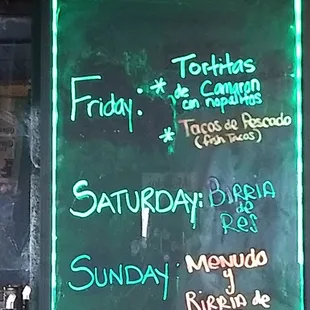 Friday: * Tortitas
de Camaron
con nopalitos
* Tacos de Pescado
(fish Tacos)
SATURDAY: BIRRIA
de
RES
SUNDAY: MENUDO
y
BIRRIA de